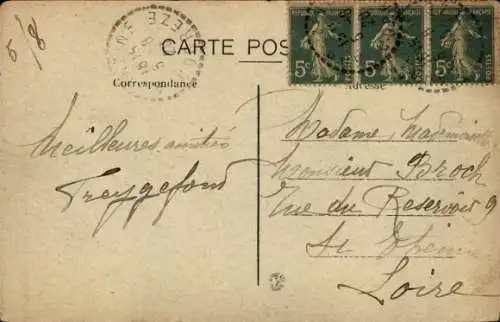 5/8
CARTE POS
Correspondance
Adresse
5c 5c 5c
Meilleures amitiés
Madame, Mademoiselle
Monsieur Broch
Rue du Reservoir 9
St
Loire